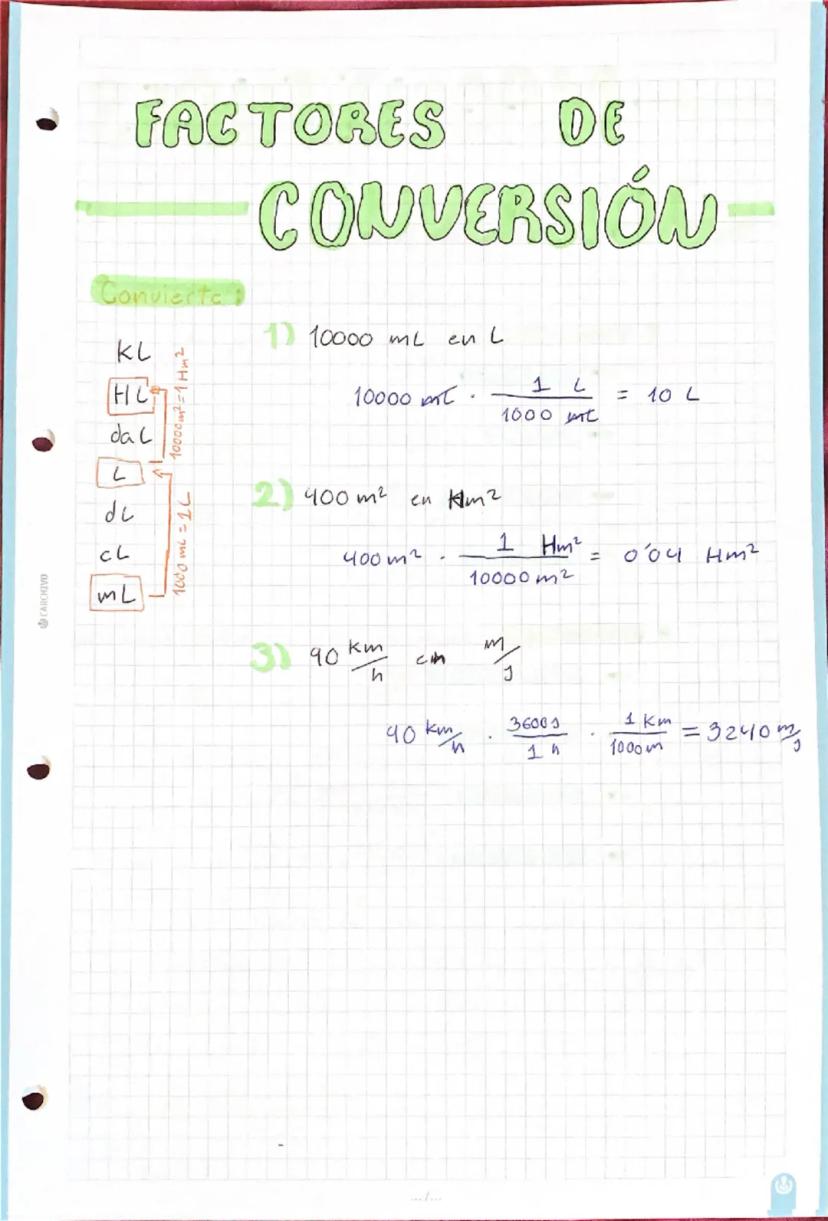 FACTORES DE
CONVERSIÓN
Convierte:
KL
HL
daL
L
dL
cL
mL
10000m²=1Hm²
1000 mL = 1L
1) 10000 mL en L
10000 mL · 1 L / 1000 mL = 10 L
2) 400 m² en Hm²
400 m² · 1 Hm² / 10000 m² = 0'04 Hm²
3) 90 km/h en m/s
90 km/h · 3600s / 1 h · 1 Km / 1000 m = 3240 m/s
CARCHIVO
.../...